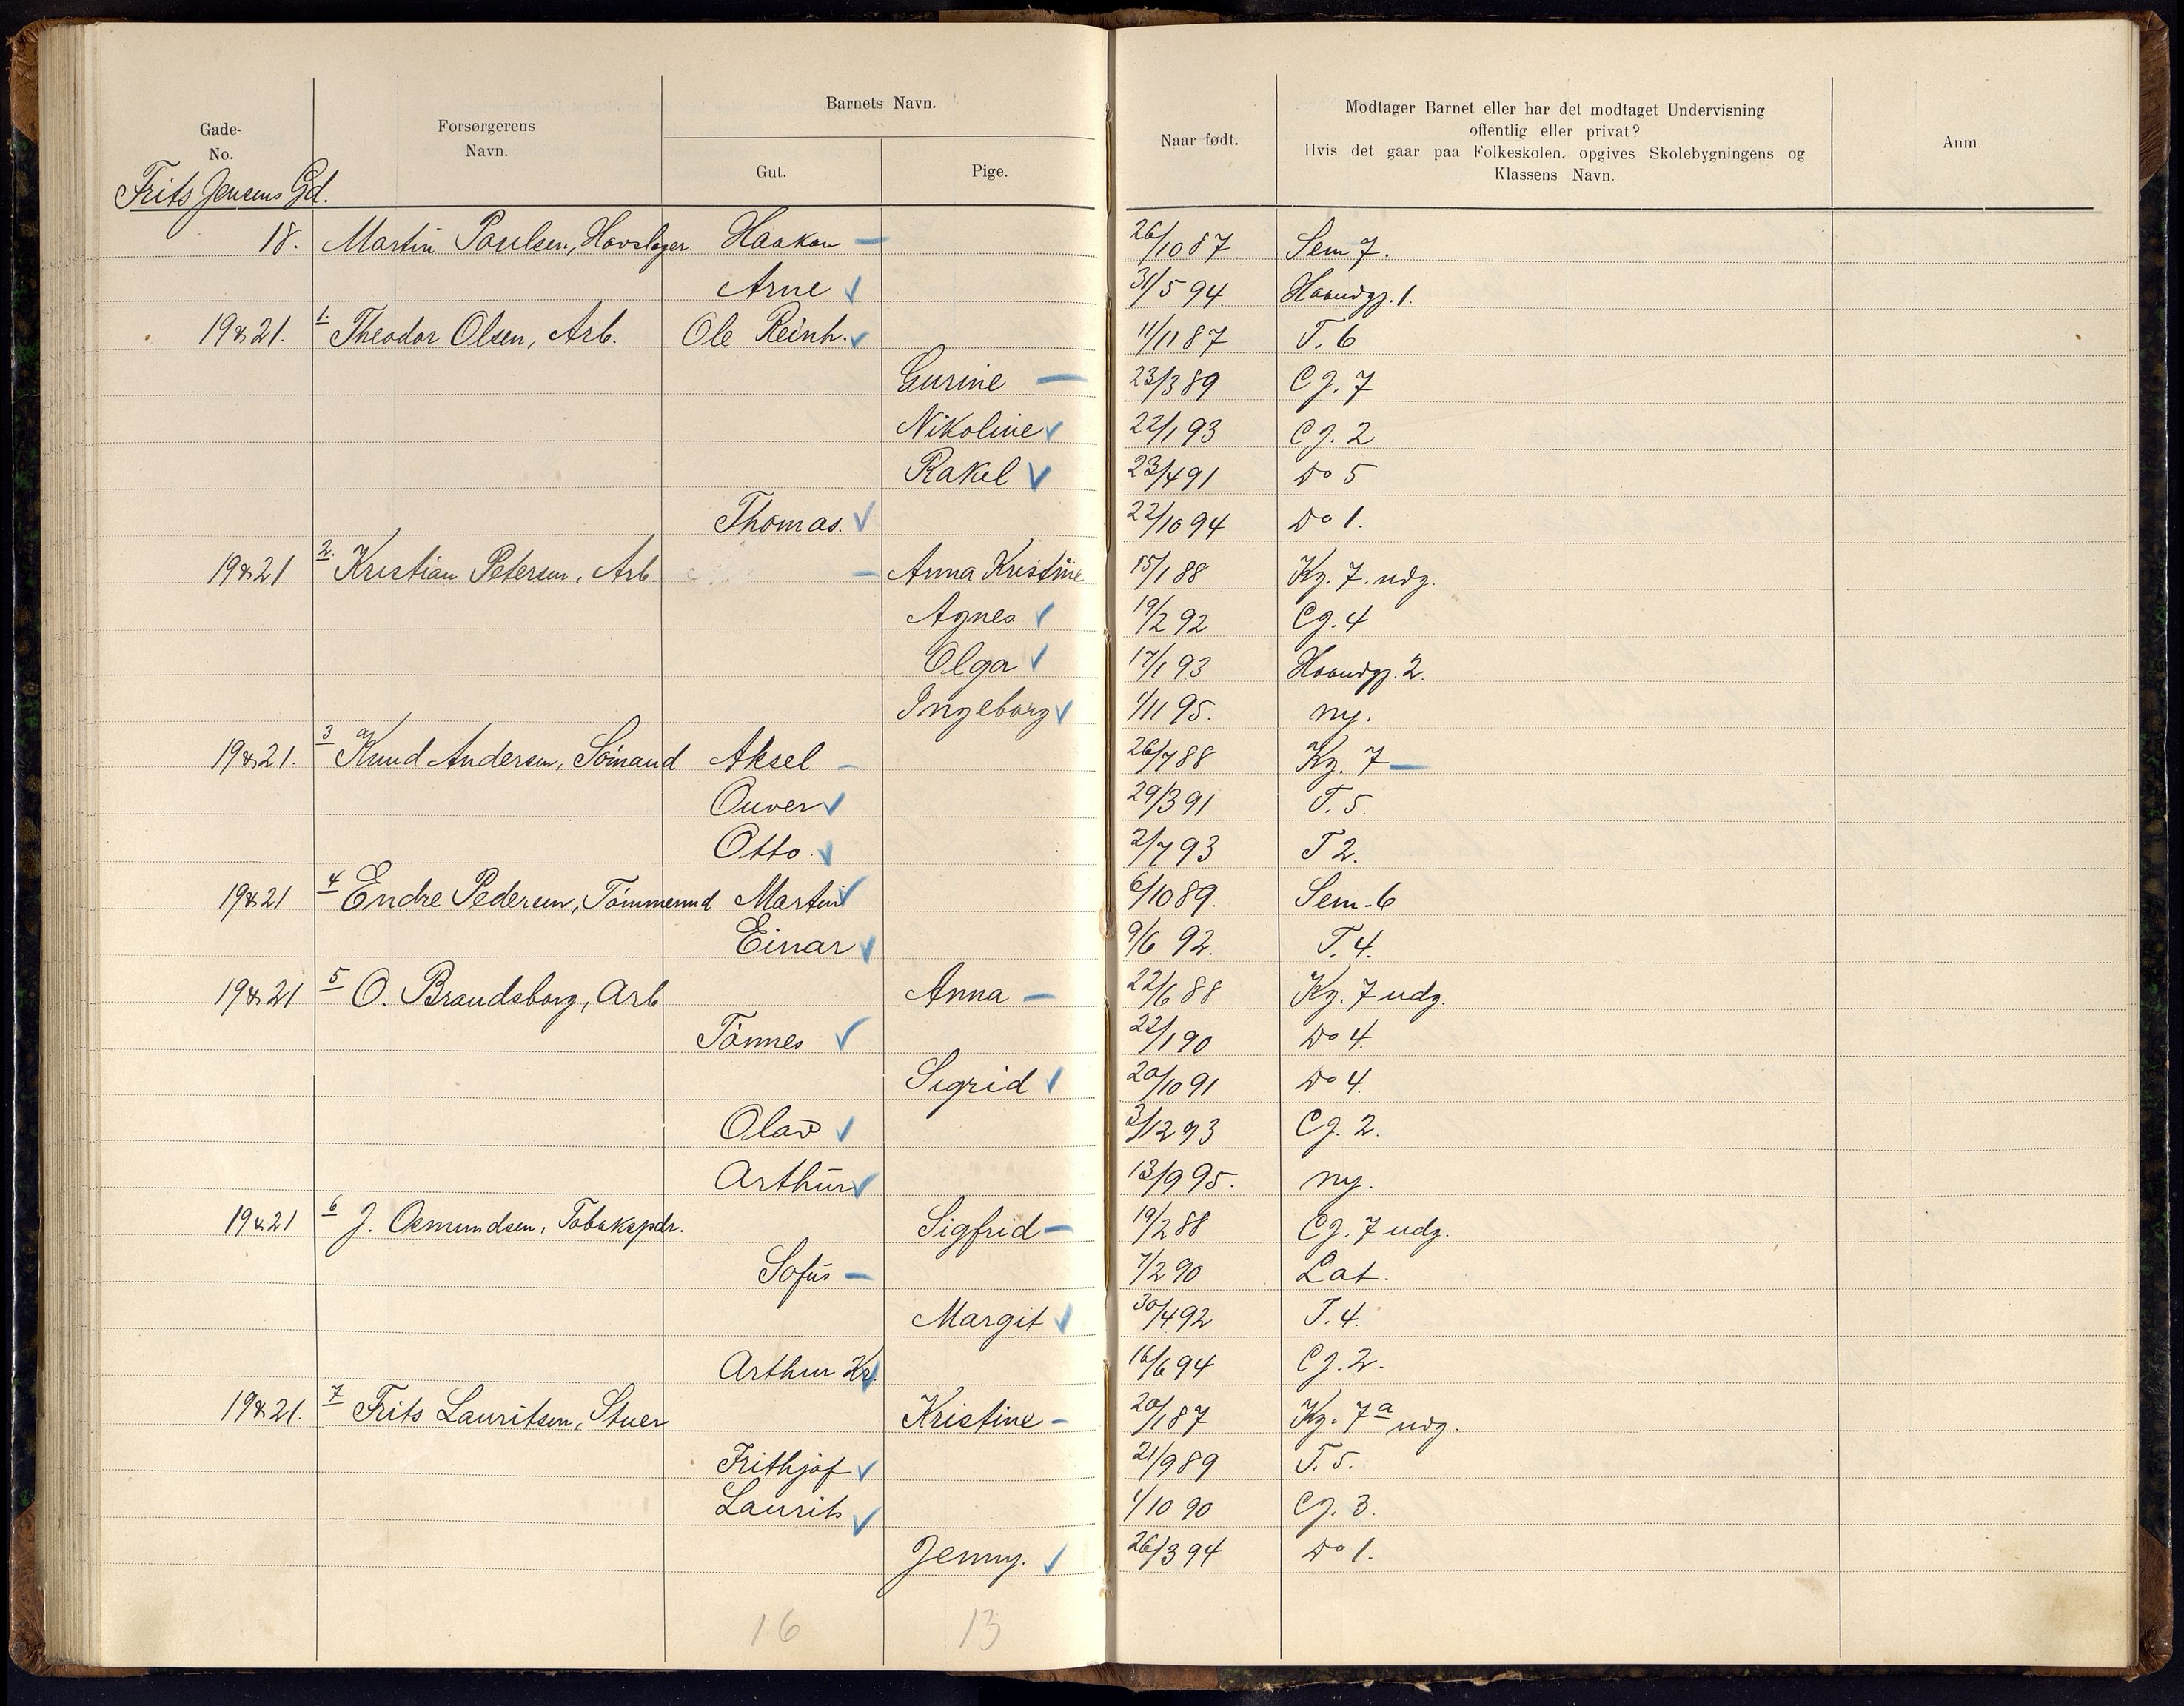 Gade-
No.
Forsørgerens
Navn.
Barnets Navn.
Gut.
Pige.
Naar født.
Modtager Barnet eller har det modtaget Undervisning
offentlig eller privat?
Hvis det gaar paa Folkeskolen, opgives Skolebygningens og
Klassens Navn.
Anm.
Frits Jensens Gd.
18. Martin Paulsen, Hovslager Haakon — 26/10 87 Sem 7.
Arne ✓ 31/5 94. Haandgj. 1.
19&21. 1. Theodor Olsen, Arb. Ole Reinh. ✓ 11/11 87 T. 6
Gurine — 23/3 89 Cg. 7
Nikoline ✓ 22/1 93 Cg. 2
Rakel ✓ 23/4 91 Do 5
Thomas. ✓ 22/10 94 Do 1.
19&21 2. Kristian Petersen, Arb. — Anna Kristine 15/1 88 Kg. 7. udg.
Agnes ✓ 19/2 92 Cg. 4
Olga ✓ 17/1 93 Haandgj. 2.
Ingeborg ✓ 1/11 95. ny.
19&21. 3 Knud Andersen, Sömand Aksel — 26/7 88 Kg. 7 —
Ouver ✓ 29/3 91 T. 5.
Otto. ✓ 2/7 93 T 2.
19&21 4 Endre Pedersen, Tömmermd Martin ✓ 6/10 89. Sem. 6
Einar ✓ 9/6 92. T. 4.
19&21 5 O. Brandsborg, Arb Anna — 22/6 88 Kg. 7 udg.
Tönnes ✓ 22/1 90 Do 4.
Sigrid ✓ 20/10 91 Do 4.
Olav ✓ 3/12 93 Cg. 2.
Arthur ✓ 13/9 95. ny.
19&21 6 J. Osmundsen, Tobakspdr. Sigfrid — 19/2 88 Cg. 7 udg.
Sofus — 7/2 90 Lat.
Margit ✓ 30/4 92 T. 4.
Arthur Kr. ✓ 16/6 94 Cg. 2.
19&21. 7 Frits Lauritsen, Stuer Kristine — 20/1 87 Kg. 7a udg.
Frithjof ✓ 21/9 89 T. 5.
Laurits ✓ 1/10 90 Cg. 3.
Jenny. ✓ 26/3 94 Do 1.
16 13